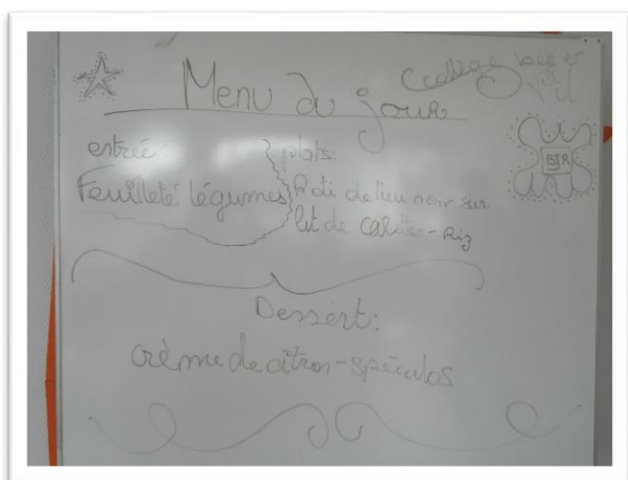 Menu du jour
collège
entrée:
Feuilleté légumes
plats:
Roti de lieu noir sur
lit de carottes - Riz
BTR
Dessert:
crème de citron - spéculos